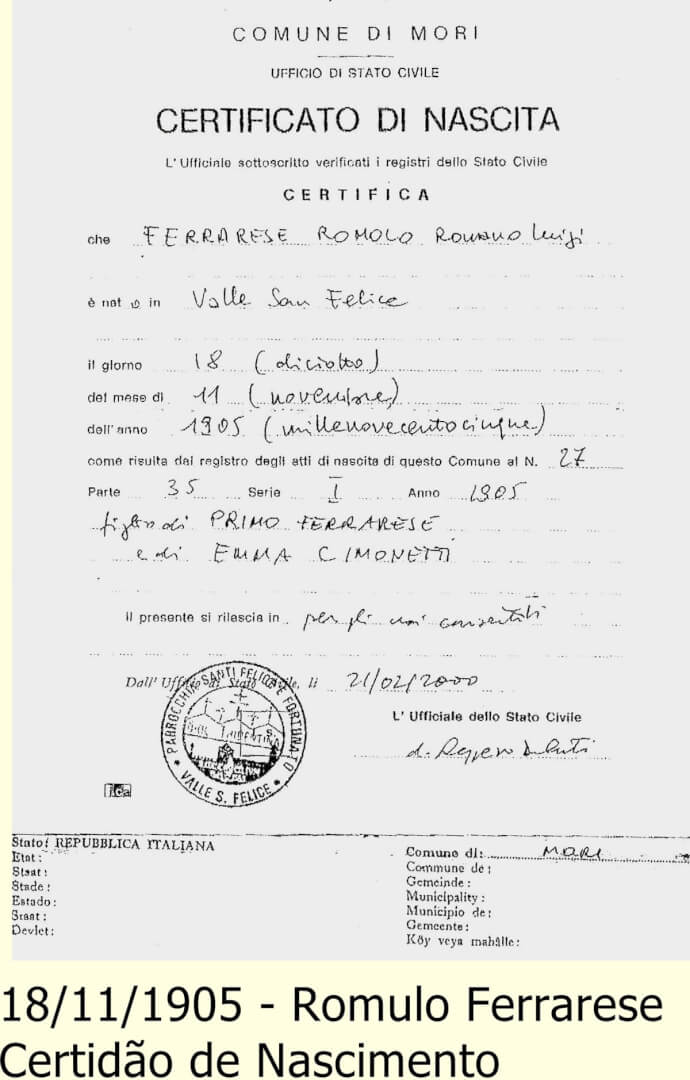 COMUNE DI MORI
UFFICIO DI STATO CIVILE
CERTIFICATO DI NASCITA
L'Ufficiale sottoscritto verificati i registri dello Stato Civile
CERTIFICA
che FERRARESE ROMOLO ROMANO Luigi
è nat o in Valle San Felice
il giorno 18 (diciotto)
del mese di 11 (novembre)
dell'anno 1905 (millenovecentocinque)
come risulta dal registro degli atti di nascita di questo Comune al N. 27
Parte 35 Serie I Anno 1905
figlio di PRIMO FERRARESE
e di EMMA CIMONETTI
Il presente si rilascia in per gli usi consentiti
Dall' Ufficio di Stato Civile, li 21/02/2000
PARROCCHIA SANTI FELICE E FORTUNATO
VALLE S. FELICE
L'Ufficiale dello Stato Civile
Stato: REPUBBLICA ITALIANA
Etat:
Staat:
State:
Estado:
Staat:
Devlet:
Comune di: MORI
Commune de:
Gemeinde:
Municipality:
Municipio de:
Gemeente:
Köy veya mahâlle:
18/11/1905 - Romulo Ferrarese
Certidão de Nascimento